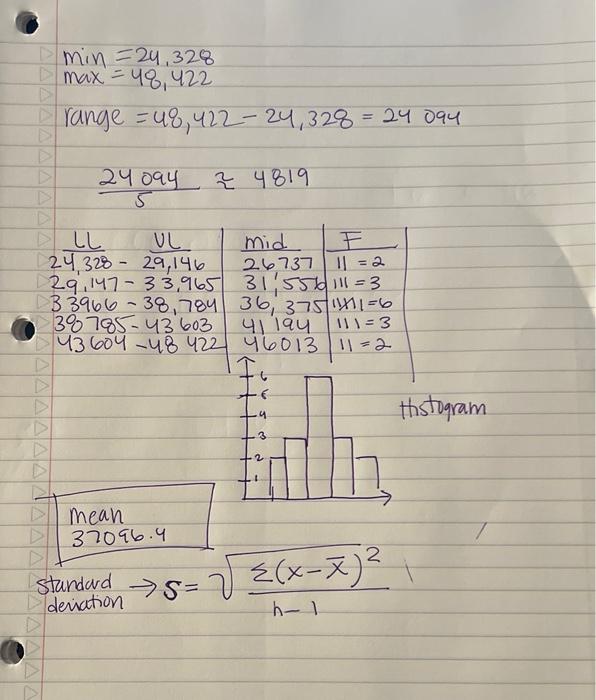 min = 24,328
max = 48,422
range = 48,422 - 24,328 = 24 094
24 094 / 5 ≈ 4819
LL UL mid F
24,328 - 29,146 26737 || = 2
29,147 - 33,965 31,556 ||| = 3
33966 - 38,784 36,375 |||||| = 6
38785 - 43603 41194 ||| = 3
43604 - 48422 46013 || = 2
6
5
4
3
2
1
Histogram
mean
37096.4
standard deviation → S = √ Σ(x - x̄)² / n - 1